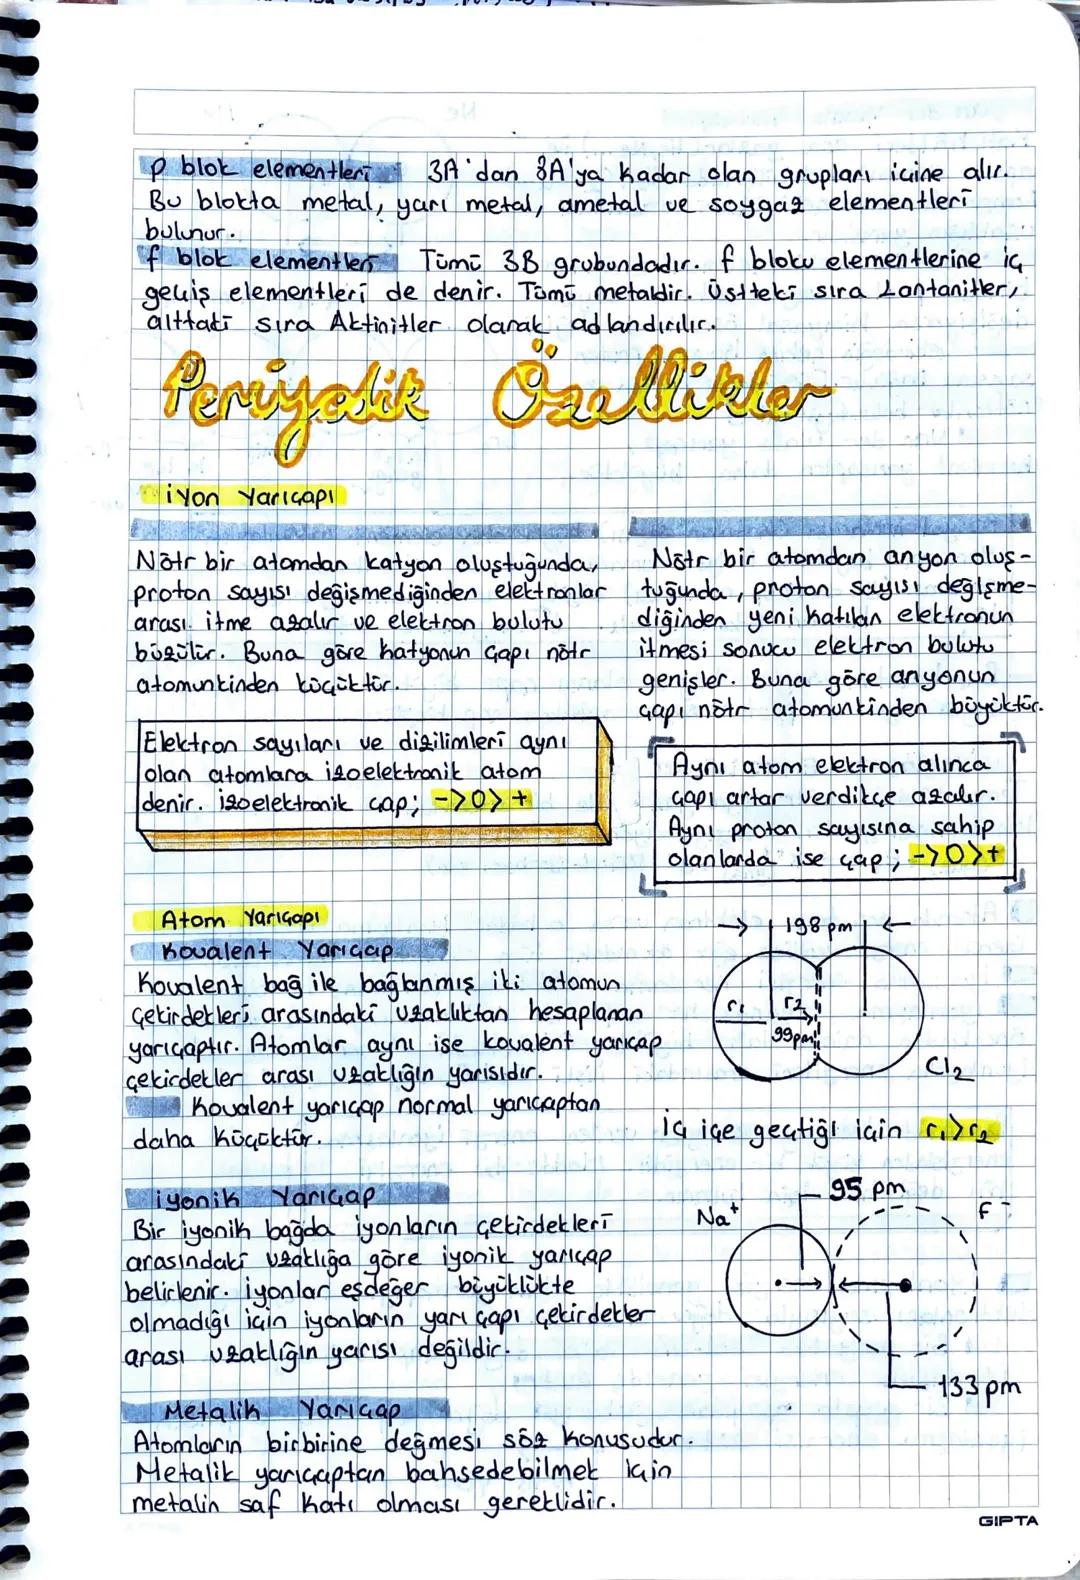 p blok elementleri 3A'dan 8A'ya kadar olan grupları içine alır.
Bu blokta metal, yarı metal, ametal ve soygaz elementleri
bulunur.
f blok elementleri Tümü 3B grubundadır. f bloku elementlerine iç
geçiş elementleri de denir. Tümü metaldir. Üstteki sıra Lantanitler,
alttaki sıra Aktinitler olarak adlandırılır.
Periyodik Özellikler
iyon Yarıçapı
Nötr bir atomdan katyon oluştuğunda,
proton sayısı değişmediğinden elektronlar
arası itme azalır ve elektron bulutu
büzülür. Buna göre katyonun çapı nötr
atomunkinden küçüktür.
Nötr bir atomdan anyon oluş-
tuğunda, proton sayısı değişme-
diğinden yeni katılan elektronun
itmesi sonucu elektron bulutu
genişler. Buna göre anyonun
çapı nötr atomunkinden büyüktür.
Elektron sayıları ve dizilimleri aynı
olan atomlara izoelektronik atom
denir. izoelektronik çap; ->0>+
Aynı atom elektron alınca
çapı artar verdikçe azalır.
Aynı proton sayısına sahip
olanlarda ise çap; ->0>+
Atom Yarıçapı
Kovalent Yarıçap
Kovalent bağ ile bağlanmış iki atomun
çekirdekleri arasındaki uzaklıktan hesaplanan
yarıçaptır. Atomlar aynı ise kovalent yarıçap
çekirdekler arası uzaklığın yarısıdır.
Kovalent yarıçap normal yarıçaptan
daha küçüktür.
198 pm
r₁
r₂
99pm
Cl₂
iç içe geçtiği için r₁>r₂
iyonik Yarıçap
Bir iyonik bağda iyonların çekirdekleri
arasındaki uzaklığa göre iyonik yarıçap
belirlenir. iyonlar eşdeğer büyüklükte
olmadığı için iyonların yarı çapı çekirdekler
arası uzaklığın yarısı değildir.
95 pm
Na⁺
F⁻
133 pm
Metalik Yarıçap
Atomların birbirine değmesi söz konusudur.
Metalik yarıçaptan bahsedebilmek için
metalin saf katı olması gereklidir.
GIPTA